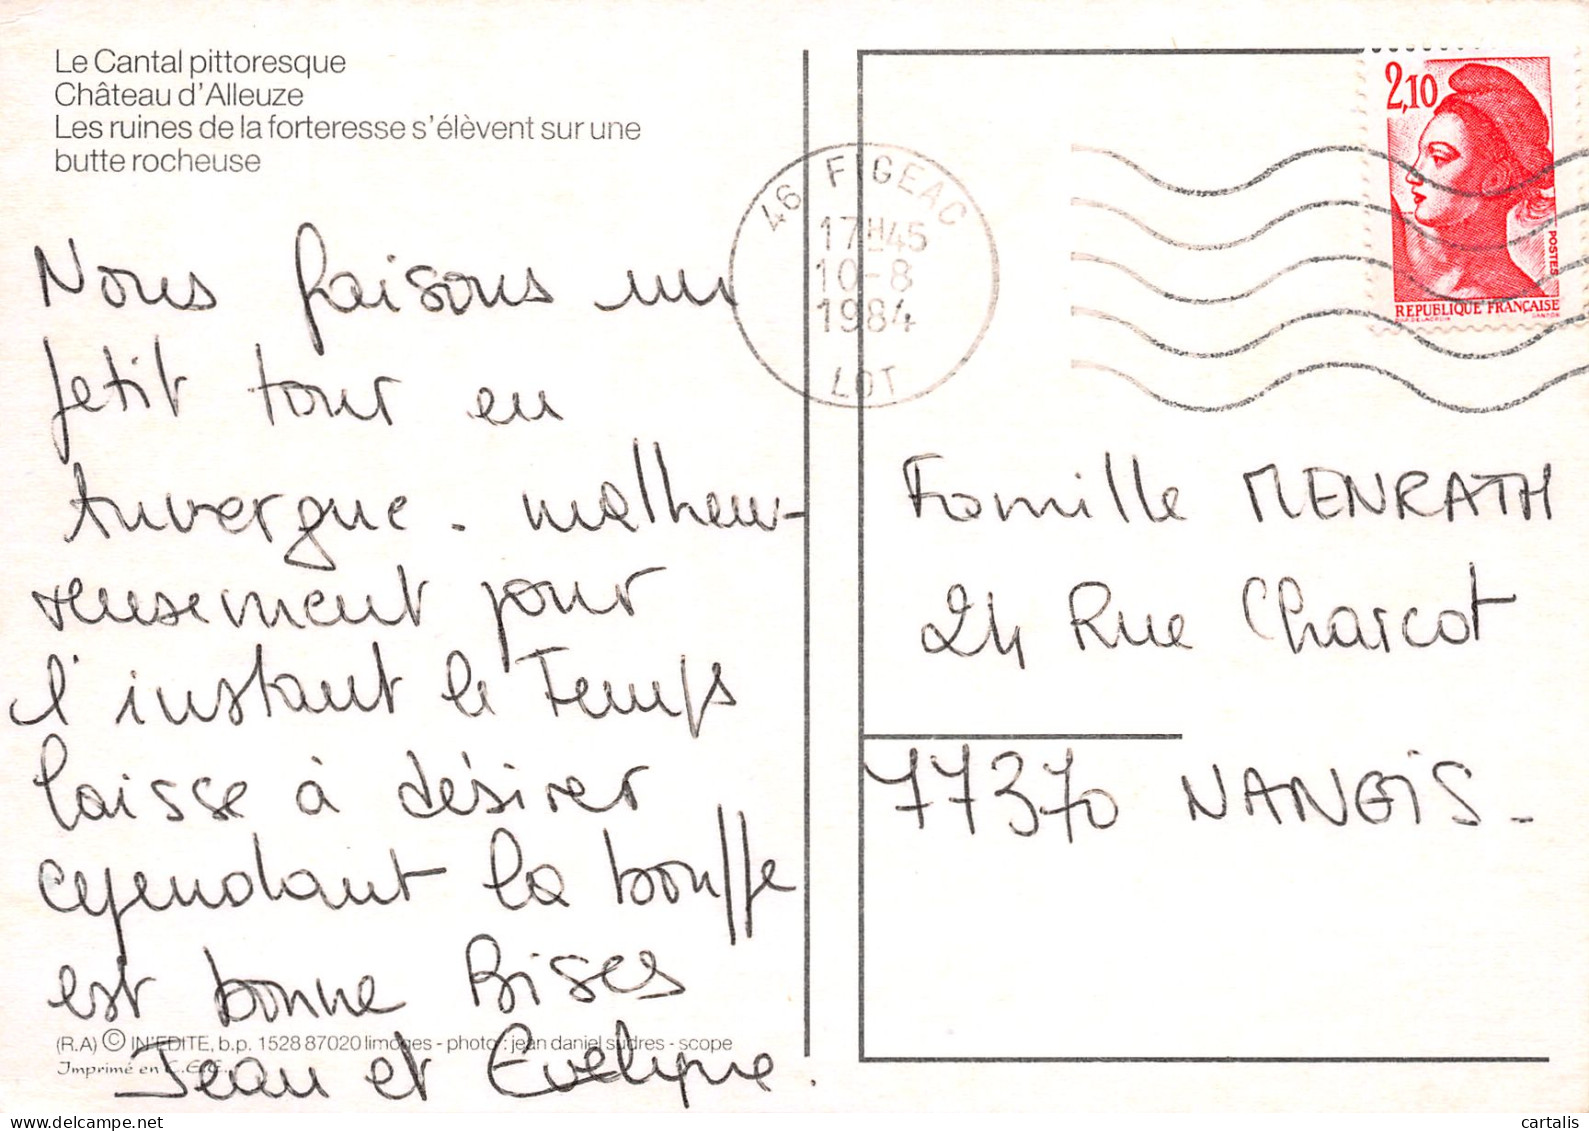 Le Cantal pittoresque
Château d'Alleuze
Les ruines de la forteresse s'élèvent sur une
butte rocheuse
Nous faisons un
petit tour en
Auvergne. malheu-
reusement pour
l'instant le Temps
laisse à désirer
cependant la bouffe
est bonne Bises
Jean et Evelyne.
(R.A) © IN'EDITE, b.p. 1528 87020 limoges - photo : jean daniel sudres - scope
Imprimé en C.E.E.
46 FIGEAC
17H45
10-8
1984
LOT
2,10
POSTES
REPUBLIQUE FRANÇAISE
Famille MENRATH
24 Rue Charcot
77370 NANGIS -
cartalis